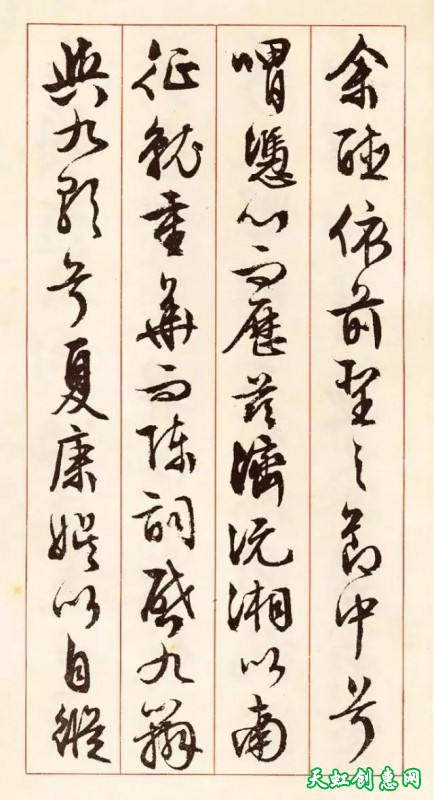 余聽依前聖之節中兮
喟憑心而歷茲濟沅湘以南
征就重華而陳詞啟九辯
與九歌兮夏康娛以自縱
天虹创惠网